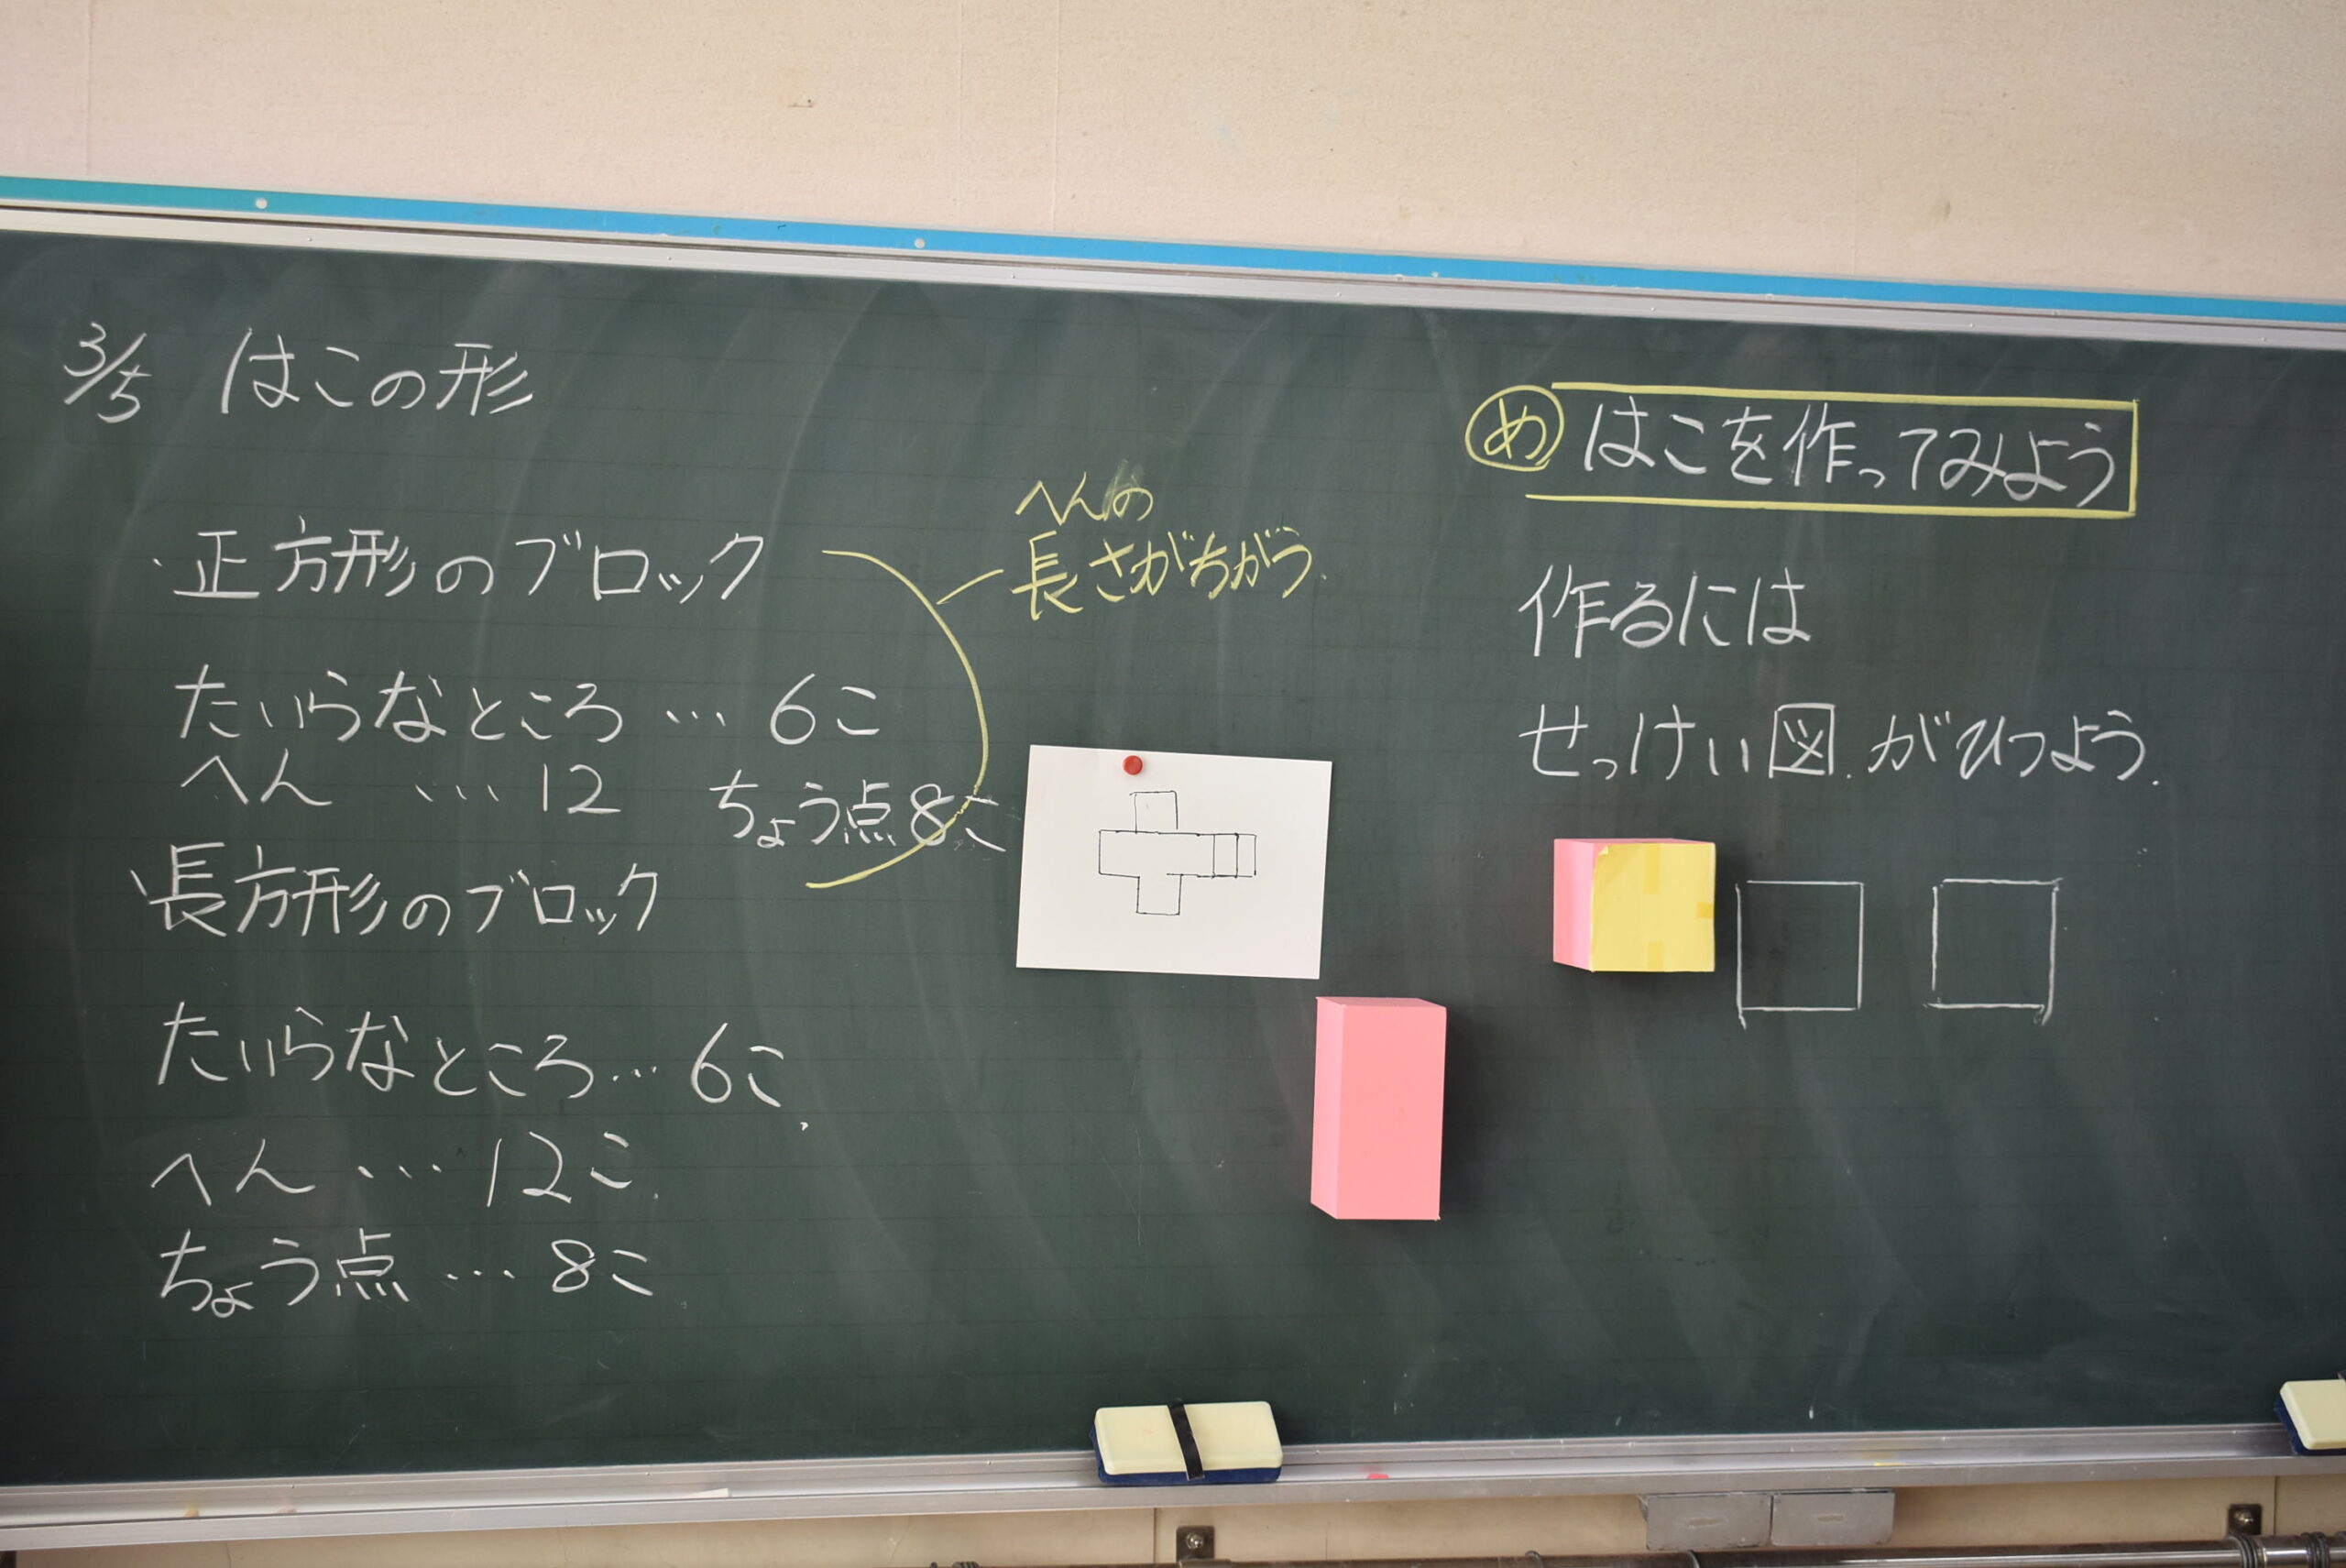 3/5 はこの形
・正方形のブロック
たいらなところ … 6こ
へん … 12 ちょう点8こ
、長方形のブロック
たいらなところ… 6こ.
へん … 12こ.
ちょう点 … 8こ
へんの
長さがちがう.
め はこを作ってみよう
作るには
せっけい図.がひつよう.